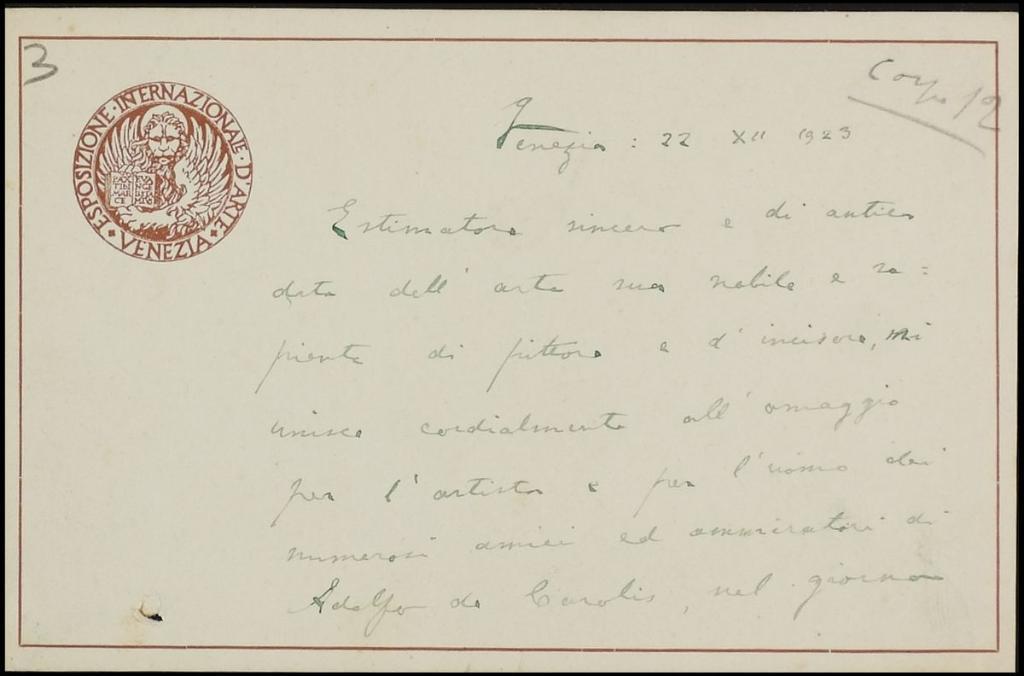 3
Corp 12
ESPOSIZIONE·INTERNAZIONALE·D'ARTE
VENEZIA
PAX TIBI MAR CE
EVA NGE LISTA MEVS
Venezia : 22 XII 1923
Estimatore sincero e di antica
data dell'arte sua nobile e sa=
piente di pittore e d'incisore, mi
unisco cordialmente all'omaggio
per l'artista e per l'uomo dei
numerosi amici ed ammiratori di
Adolfo de Carolis, nel giorno